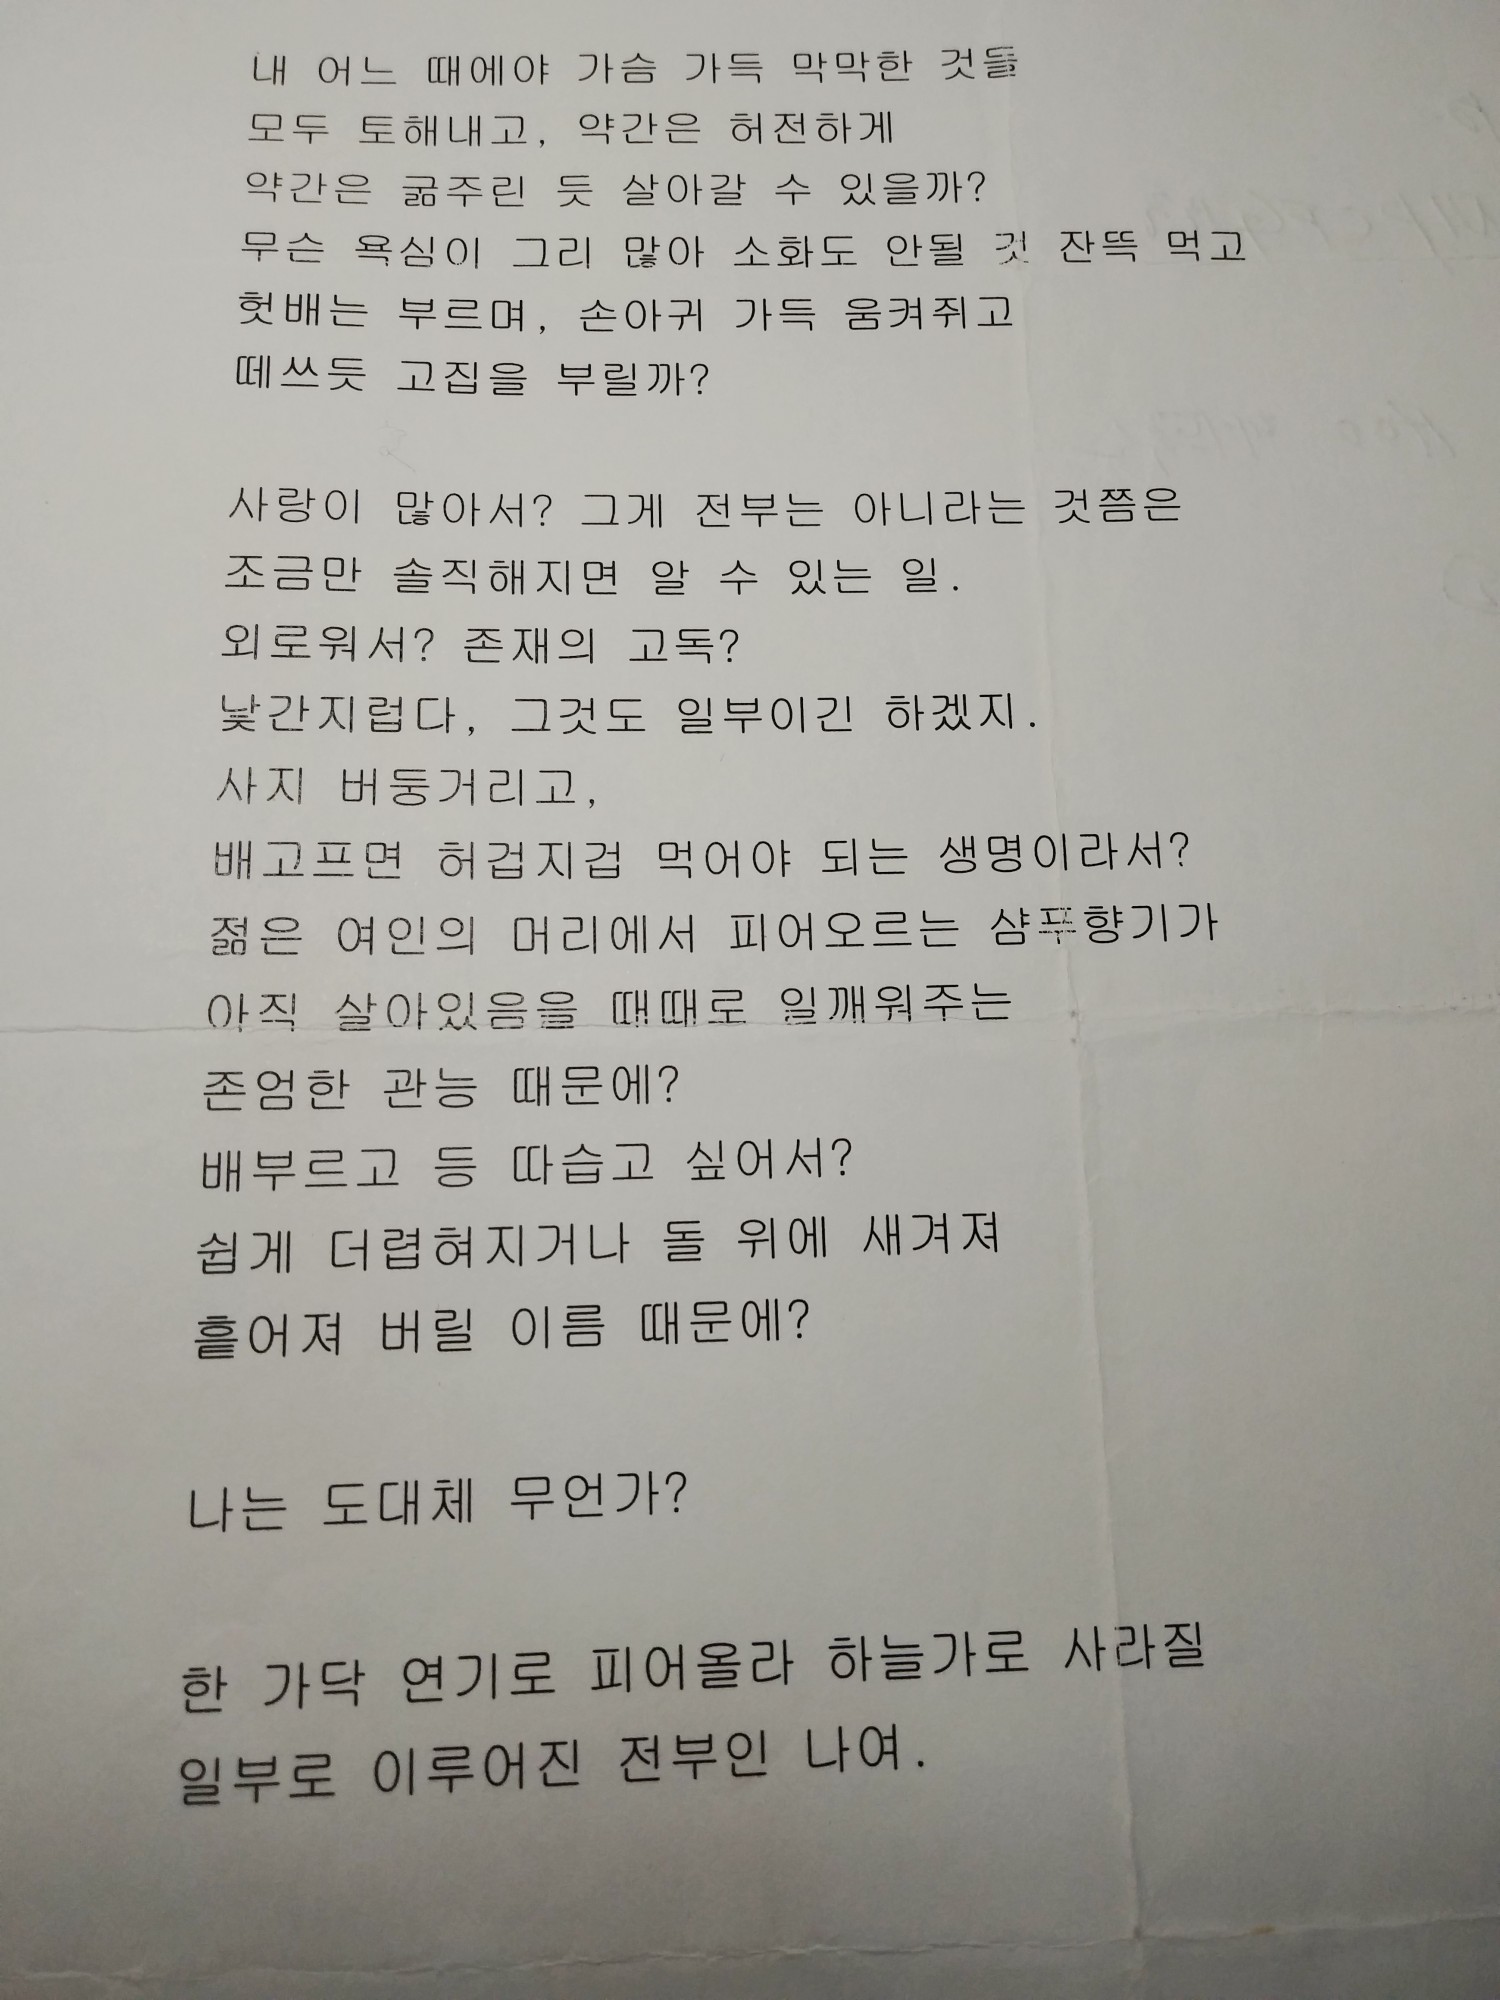 내 어느 때에야 가슴 가득 막막한 것들
모두 토해내고, 약간은 허전하게
약간은 굶주린 듯 살아갈 수 있을까?
무슨 욕심이 그리 많아 소화도 안될 것 잔뜩 먹고
헛배는 부르며, 손아귀 가득 움켜쥐고
떼쓰듯 고집을 부릴까?
사랑이 많아서? 그게 전부는 아니라는 것쯤은
조금만 솔직해지면 알 수 있는 일.
외로워서? 존재의 고독?
낯간지럽다, 그것도 일부이긴 하겠지.
사지 버둥거리고,
배고프면 허겁지겁 먹어야 되는 생명이라서?
젊은 여인의 머리에서 피어오르는 샴푸향기가
아직 살아있음을 때때로 일깨워주는
존엄한 관능 때문에?
배부르고 등 따습고 싶어서?
쉽게 더렵혀지거나 돌 위에 새겨져
흩어져 버릴 이름 때문에?
나는 도대체 무언가?
한 가닥 연기로 피어올라 하늘가로 사라질
일부로 이루어진 전부인 나여.